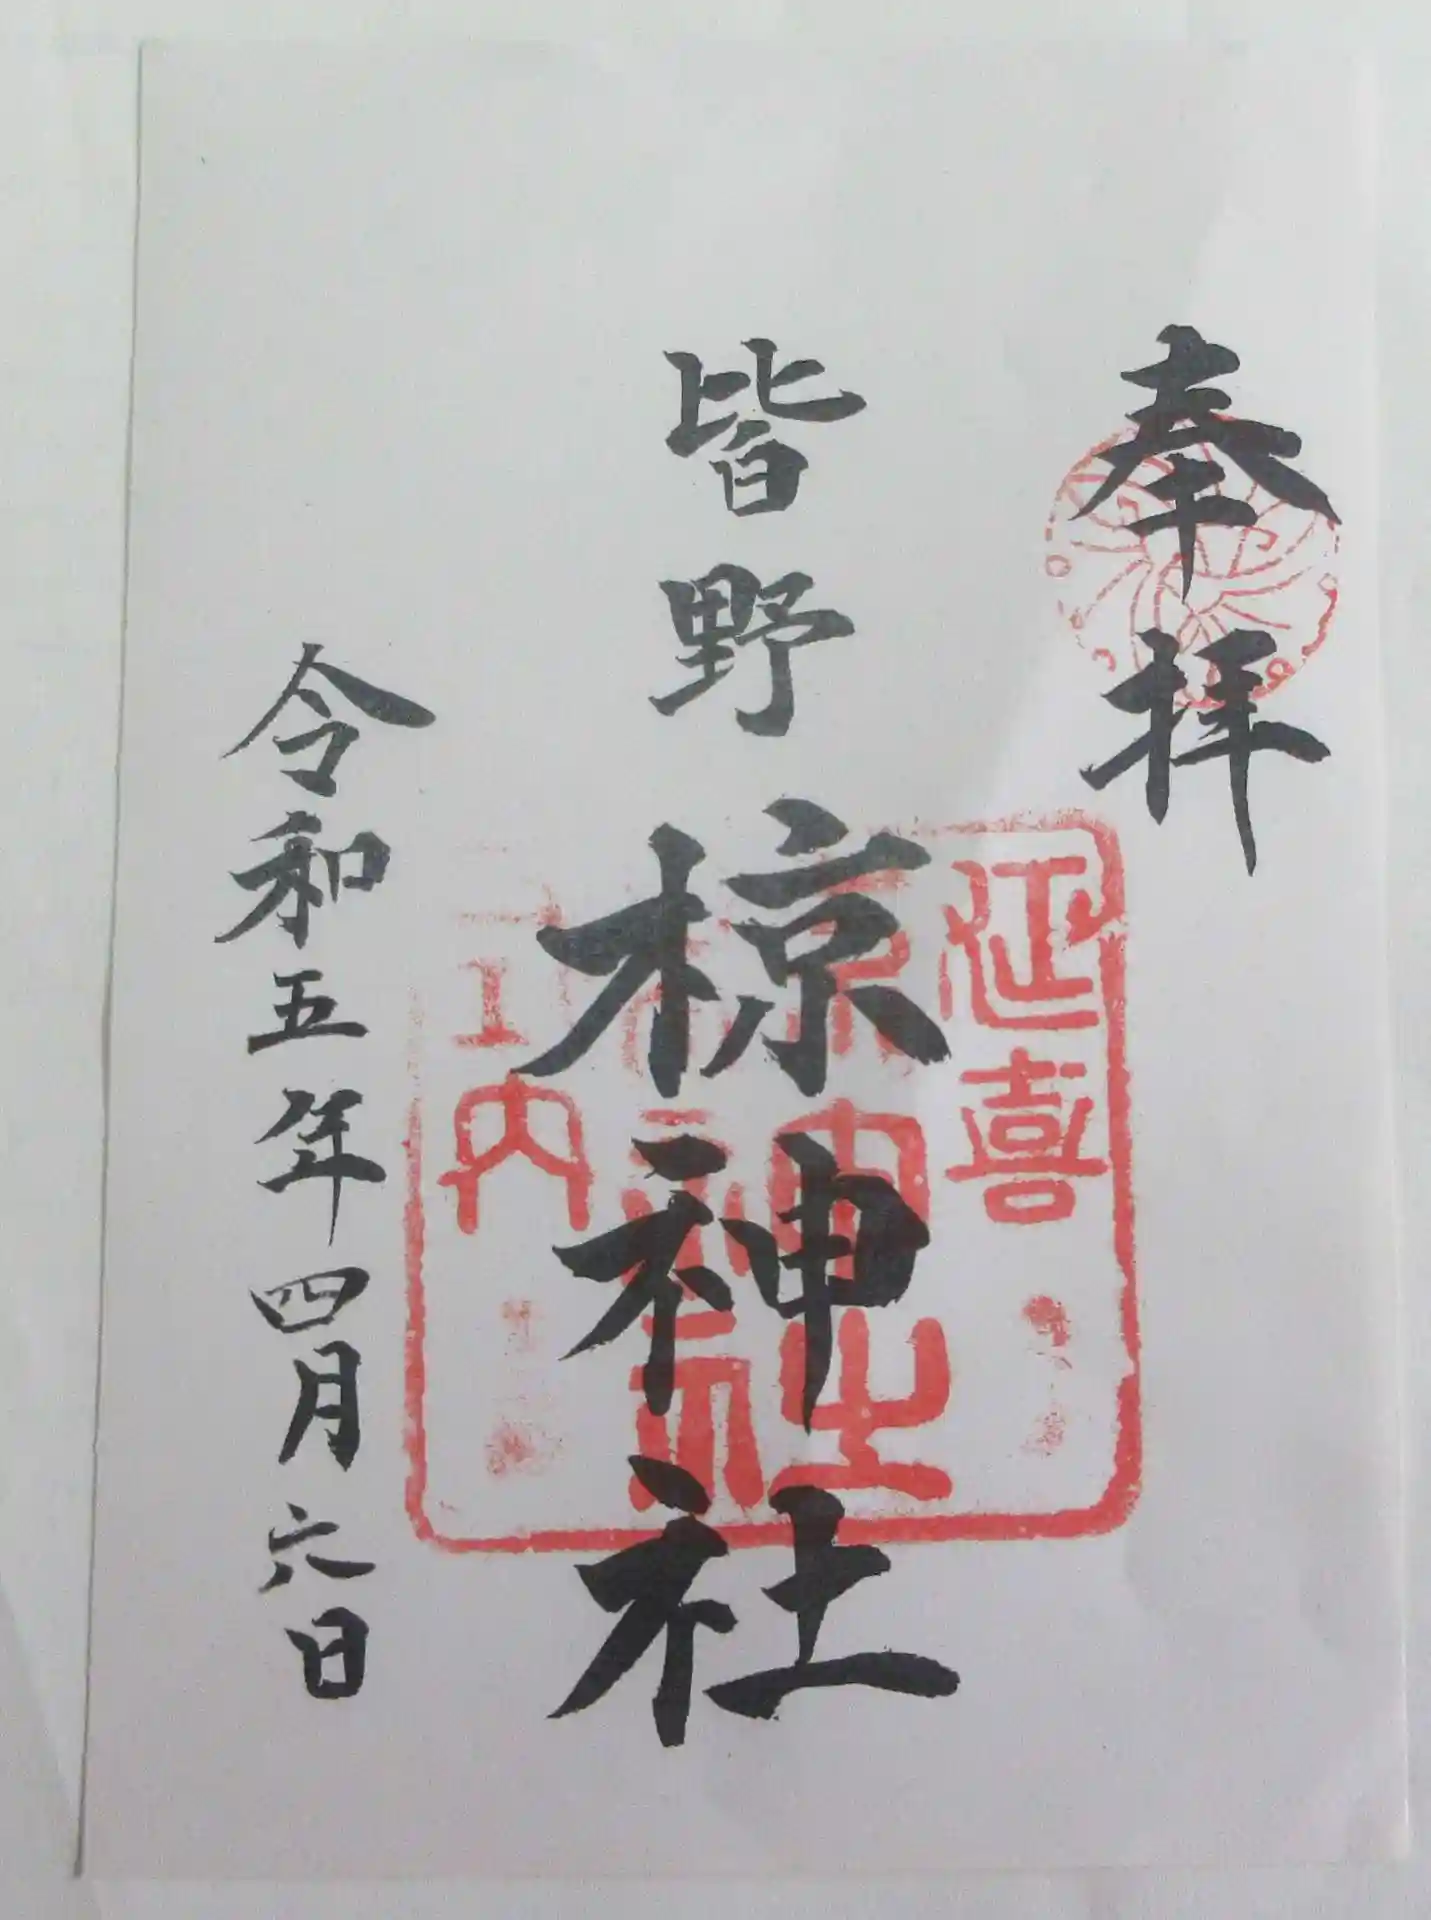 奉拝
延喜
皆野
椋神社
内
令和五年四月六日